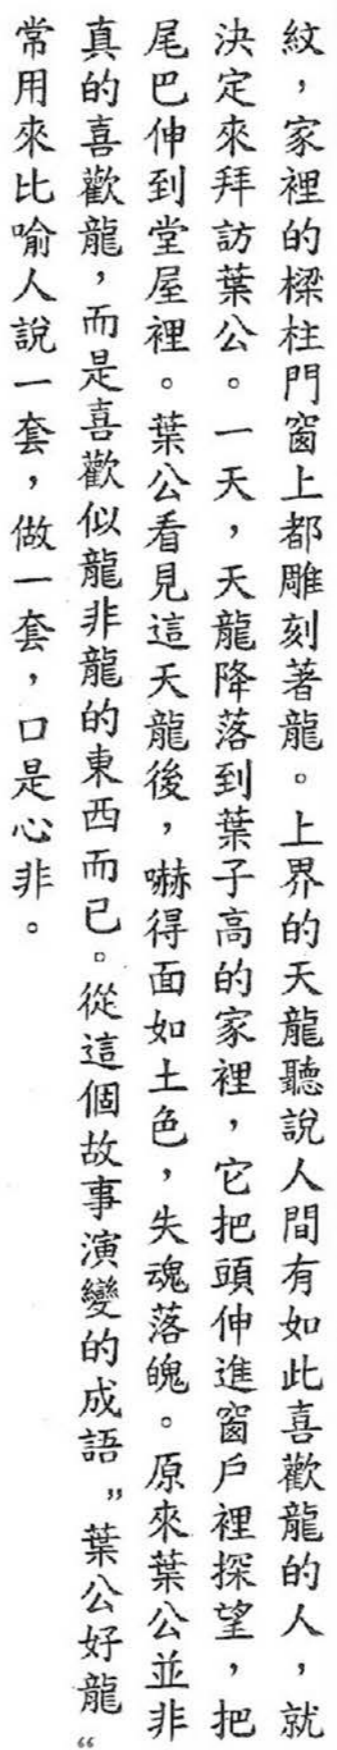 紋，家裡的樑柱門窗上都雕刻著龍。上界的天龍聽說人間有如此喜歡龍的人，就
決定來拜訪葉公。一天，天龍降落到葉子高的家裡，它把頭伸進窗戶裡探望，把
尾巴伸到堂屋裡。葉公看見這天龍後，嚇得面如土色，失魂落魄。原來葉公並非
真的喜歡龍，而是喜歡似龍非龍的東西而已。從這個故事演變的成語”葉公好龍“
常用來比喻人說一套，做一套，口是心非。